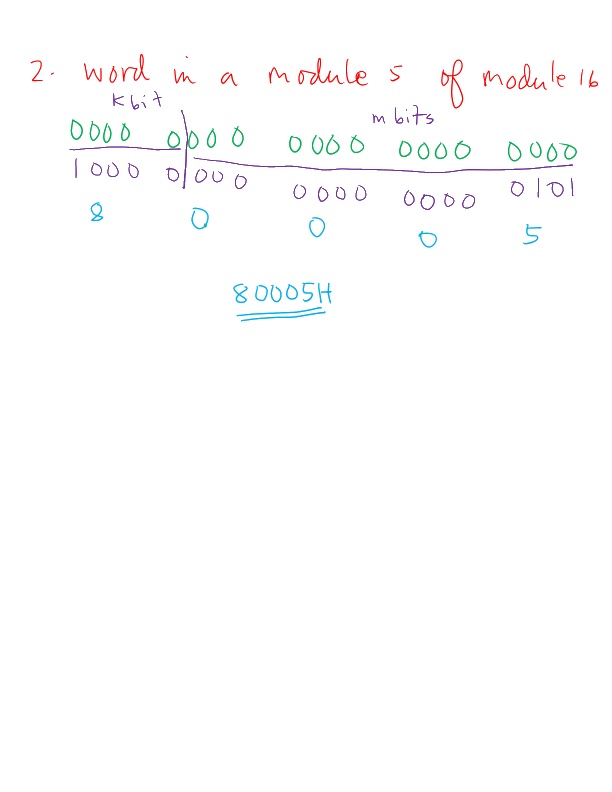 2. word in a module 5 of module 16
K bit m bits
0000 0000 0000 0000 0000
1000 0000 0000 0000 0101
8 0 0 0 5
80005H